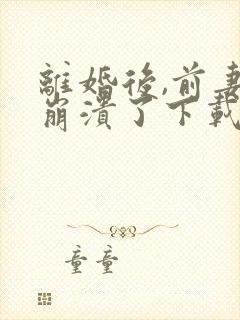 離婚後,前妻
崩潰了下載
童童